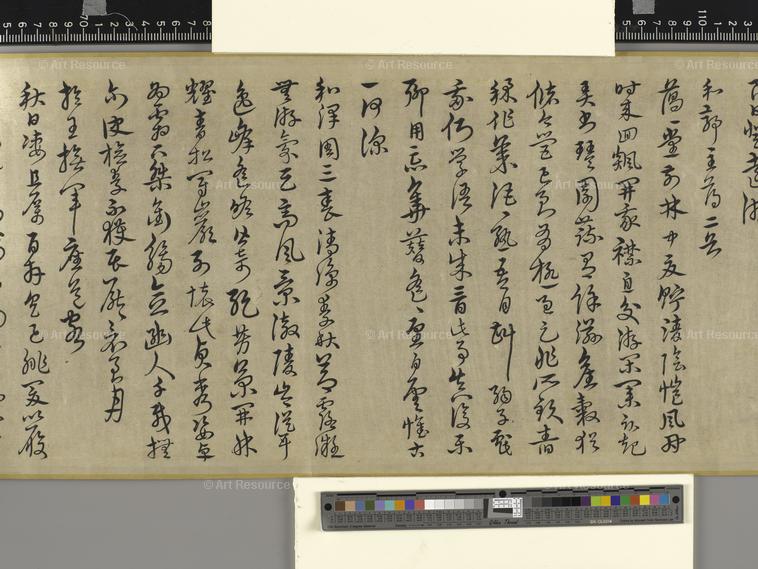 和郭主簿二首
藹藹堂前林中夏貯清陰凱風因
時來回飆開我襟息交遊閑業臥起
弄書琴園蔬有餘滋舊穀猶
儲今營己良有極過足非所欽舂
秫作美酒酒熟吾自斟弱子戲
我側學語未成音此事真復樂
聊用忘華簪遙遙望白雲懷古
一何深
和澤周三春清涼素秋節露凝
無游氛天高風景澈陵岑聳
逸峰遙瞻皆奇絕芳菊開林
耀青松冠巖列懷此貞秀姿卓
為霜下傑銜觴念幽人千載撫
爾訣檢素不獲展厭厭竟良月
於王撫軍座送客
秋日淒且厲百卉具已腓爰以履
© Art Resource
© Art Resource
© Art Resource